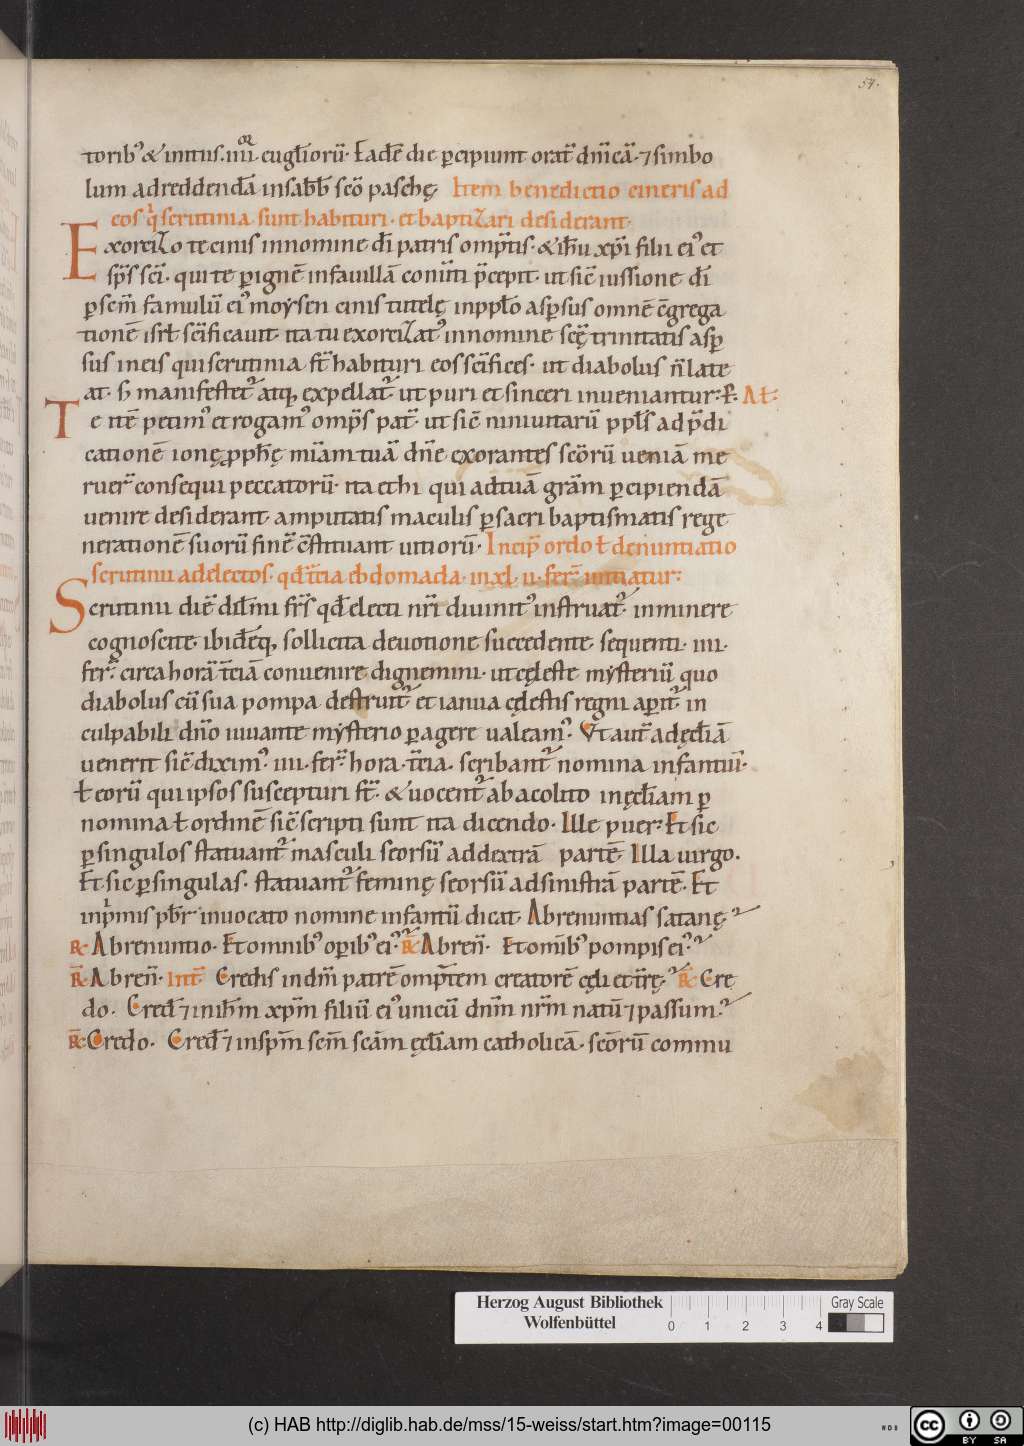 54.
torib᷒ & initiis .iiii. euḡlioru᷒. Eadē die p̱cipiunt orat̄ dn̄icā. ⁊ simbo
lum ad reddendā in sab̄b sc̄o paschę. Item benedictio cineris ad
eos q̇ scrutinia sunt habituri. et baptizari desiderant.
Exorcizo te cinis in nomine dī patris omp̄tis. & ih̄u xp̄i filii ei᷒ et
sp̄s sc̄i. qui te p̱ ignē in fauillā p̄cepit. ut sic̄ iussione dī
p̱ sc̄m̄ famulū ei᷒ moẏsen cinis tutelę in pp̄lo asp̱sus omnē c̄grega
tionē isr̄l sc̄ificauit. ita tu exorcizat᷒ in nomine sc̄ę trinitatis asp̱
sus in eis qui scrutinia st̄ habituri eos sc̄ifices. ut diabolus n̄ late
at. s; manifestet᷑ atq; expellat᷑. ut puri et sinceri inueniantur. P. Al̄.
Te itē petim᷒ et rogam᷒ omp̄s pat̄. ut sic̄ niniuitarū pp̄ls ad p̄di
cationē ionę p̱pħę mi̅am tuā dn̄e exorantes sc̄orū ueniā me
ruer̄ consequi peccatorū. ita et hi qui ad tuā grām p̱cipiendā
uenire desiderant amputatis maculis p̱ sacri baptismatis rege
nerationē suorū finē c̄stituant uitiorū. Incip̄ ordo ł denuntiatio
scrutinii ad electos. qd̄ t̄cia ebdomada in xl. ii. fer̄ initiatur.
Scrutinii diē dil̄mi fr̄s qd̄ electi nr̄i diuinit᷒ instruat᷑. inminere
cognoscite. ibidēq; sollicita deuotione succedente. sequenti .iiii.
fer̄ circa horā t̄ciā conuenire dignemini. ut cęleste mẏsteriū quo
diabolus cū sua pompa destruit᷑ et ianua cęlestis regni ap̱it᷑. in
culpabili dn̄o iuuante mẏsterio p̱agere ualeam᷒. Vt aut̄ ad ęcl̄iā
uenerit sic̄ dixim᷒. iiii. fer̄ hora t̄cia. scribant᷑ nomina infantiū.
ł eorū qui ipsos suscepturi st̄. & uocent᷑ ab acolito in ęcl̄iam p̱
nomina ł ordinē sic̄ scripti sunt ita dicendo. Ille puer. Et sic
p̱ singulos statuant᷑ masculi seorsū ad dextrā partē. Illa uirgo.
Et sic p̱ singulas. statuant᷑ feminę seorsū ad sinistrā partē. Et
inp̄mis pb̄r inuocato nomine infantū dicat. Abrenuntias satanę?
R. Abrenuntio. Et omnib᷒ op̱ib᷒ ei᷒? R. Abren̄. Et om̄ib᷒ pompis ei᷒?
R. Abren̄. Int̄. Credis in dm̄ patrē omp̄tem creatorē cęli et tr̄ę? R. Cre
do. Cred̄ ⁊ in ih̄m xp̄m filiū ei᷒ unicū dn̄m nr̄m natū ⁊ passum?
R. Credo. Cred̄ ⁊ in sp̄m sc̄m̄ sc̄am ęcl̄iam catholicā. sc̄orū commu
Herzog August Bibliothek
Wolfenbüttel
0 1 2 3 4
Gray Scale
(c) HAB http://diglib.hab.de/mss/15-weiss/start.htm?image=00115
BY SA